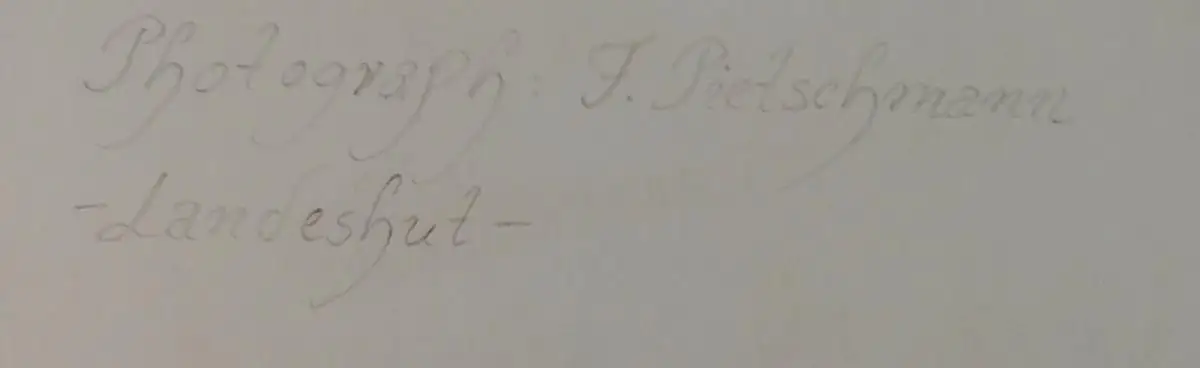 Photograph: J. Pietschmann
-Landeshut-